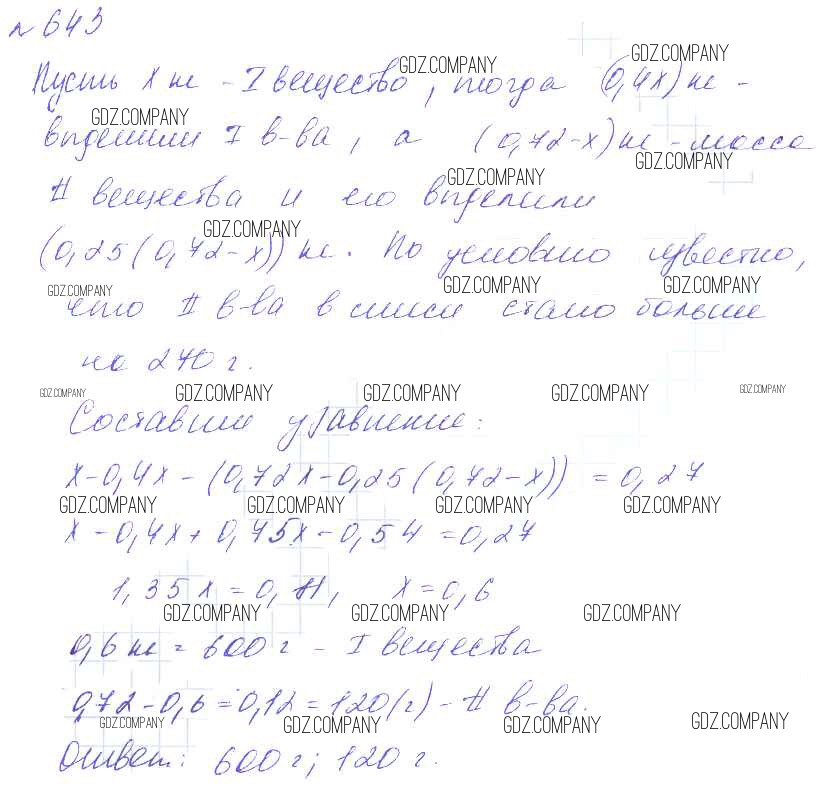 № 643
Пусть х кг - I вещество, тогда (0,4х) кг -
GDZ.COMPANY GDZ.COMPANY
выделили I в-ва, а (0,72-х) кг - масса
GDZ.COMPANY GDZ.COMPANY
II вещества и его выделили
GDZ.COMPANY GDZ.COMPANY
(0,25(0,72-х)) кг. По условию известно,
GDZ.COMPANY GDZ.COMPANY GDZ.COMPANY
что II в-ва в смеси стало больше
на 270 г.
GDZ.COMPANY GDZ.COMPANY GDZ.COMPANY GDZ.COMPANY GDZ.COMPANY
Составим уравнение:
х-0,4х-(0,72х-0,25(0,72-х)) = 0,27
GDZ.COMPANY GDZ.COMPANY GDZ.COMPANY GDZ.COMPANY
х-0,4х+0,75х-0,54=0,27
1,35х=0,81, х=0,6
GDZ.COMPANY GDZ.COMPANY GDZ.COMPANY
0,6 кг = 600 г - I вещества
0,72-0,6=0,12=120(г) - II в-ва.
GDZ.COMPANY GDZ.COMPANY GDZ.COMPANY GDZ.COMPANY
Ответ: 600 г; 120 г.